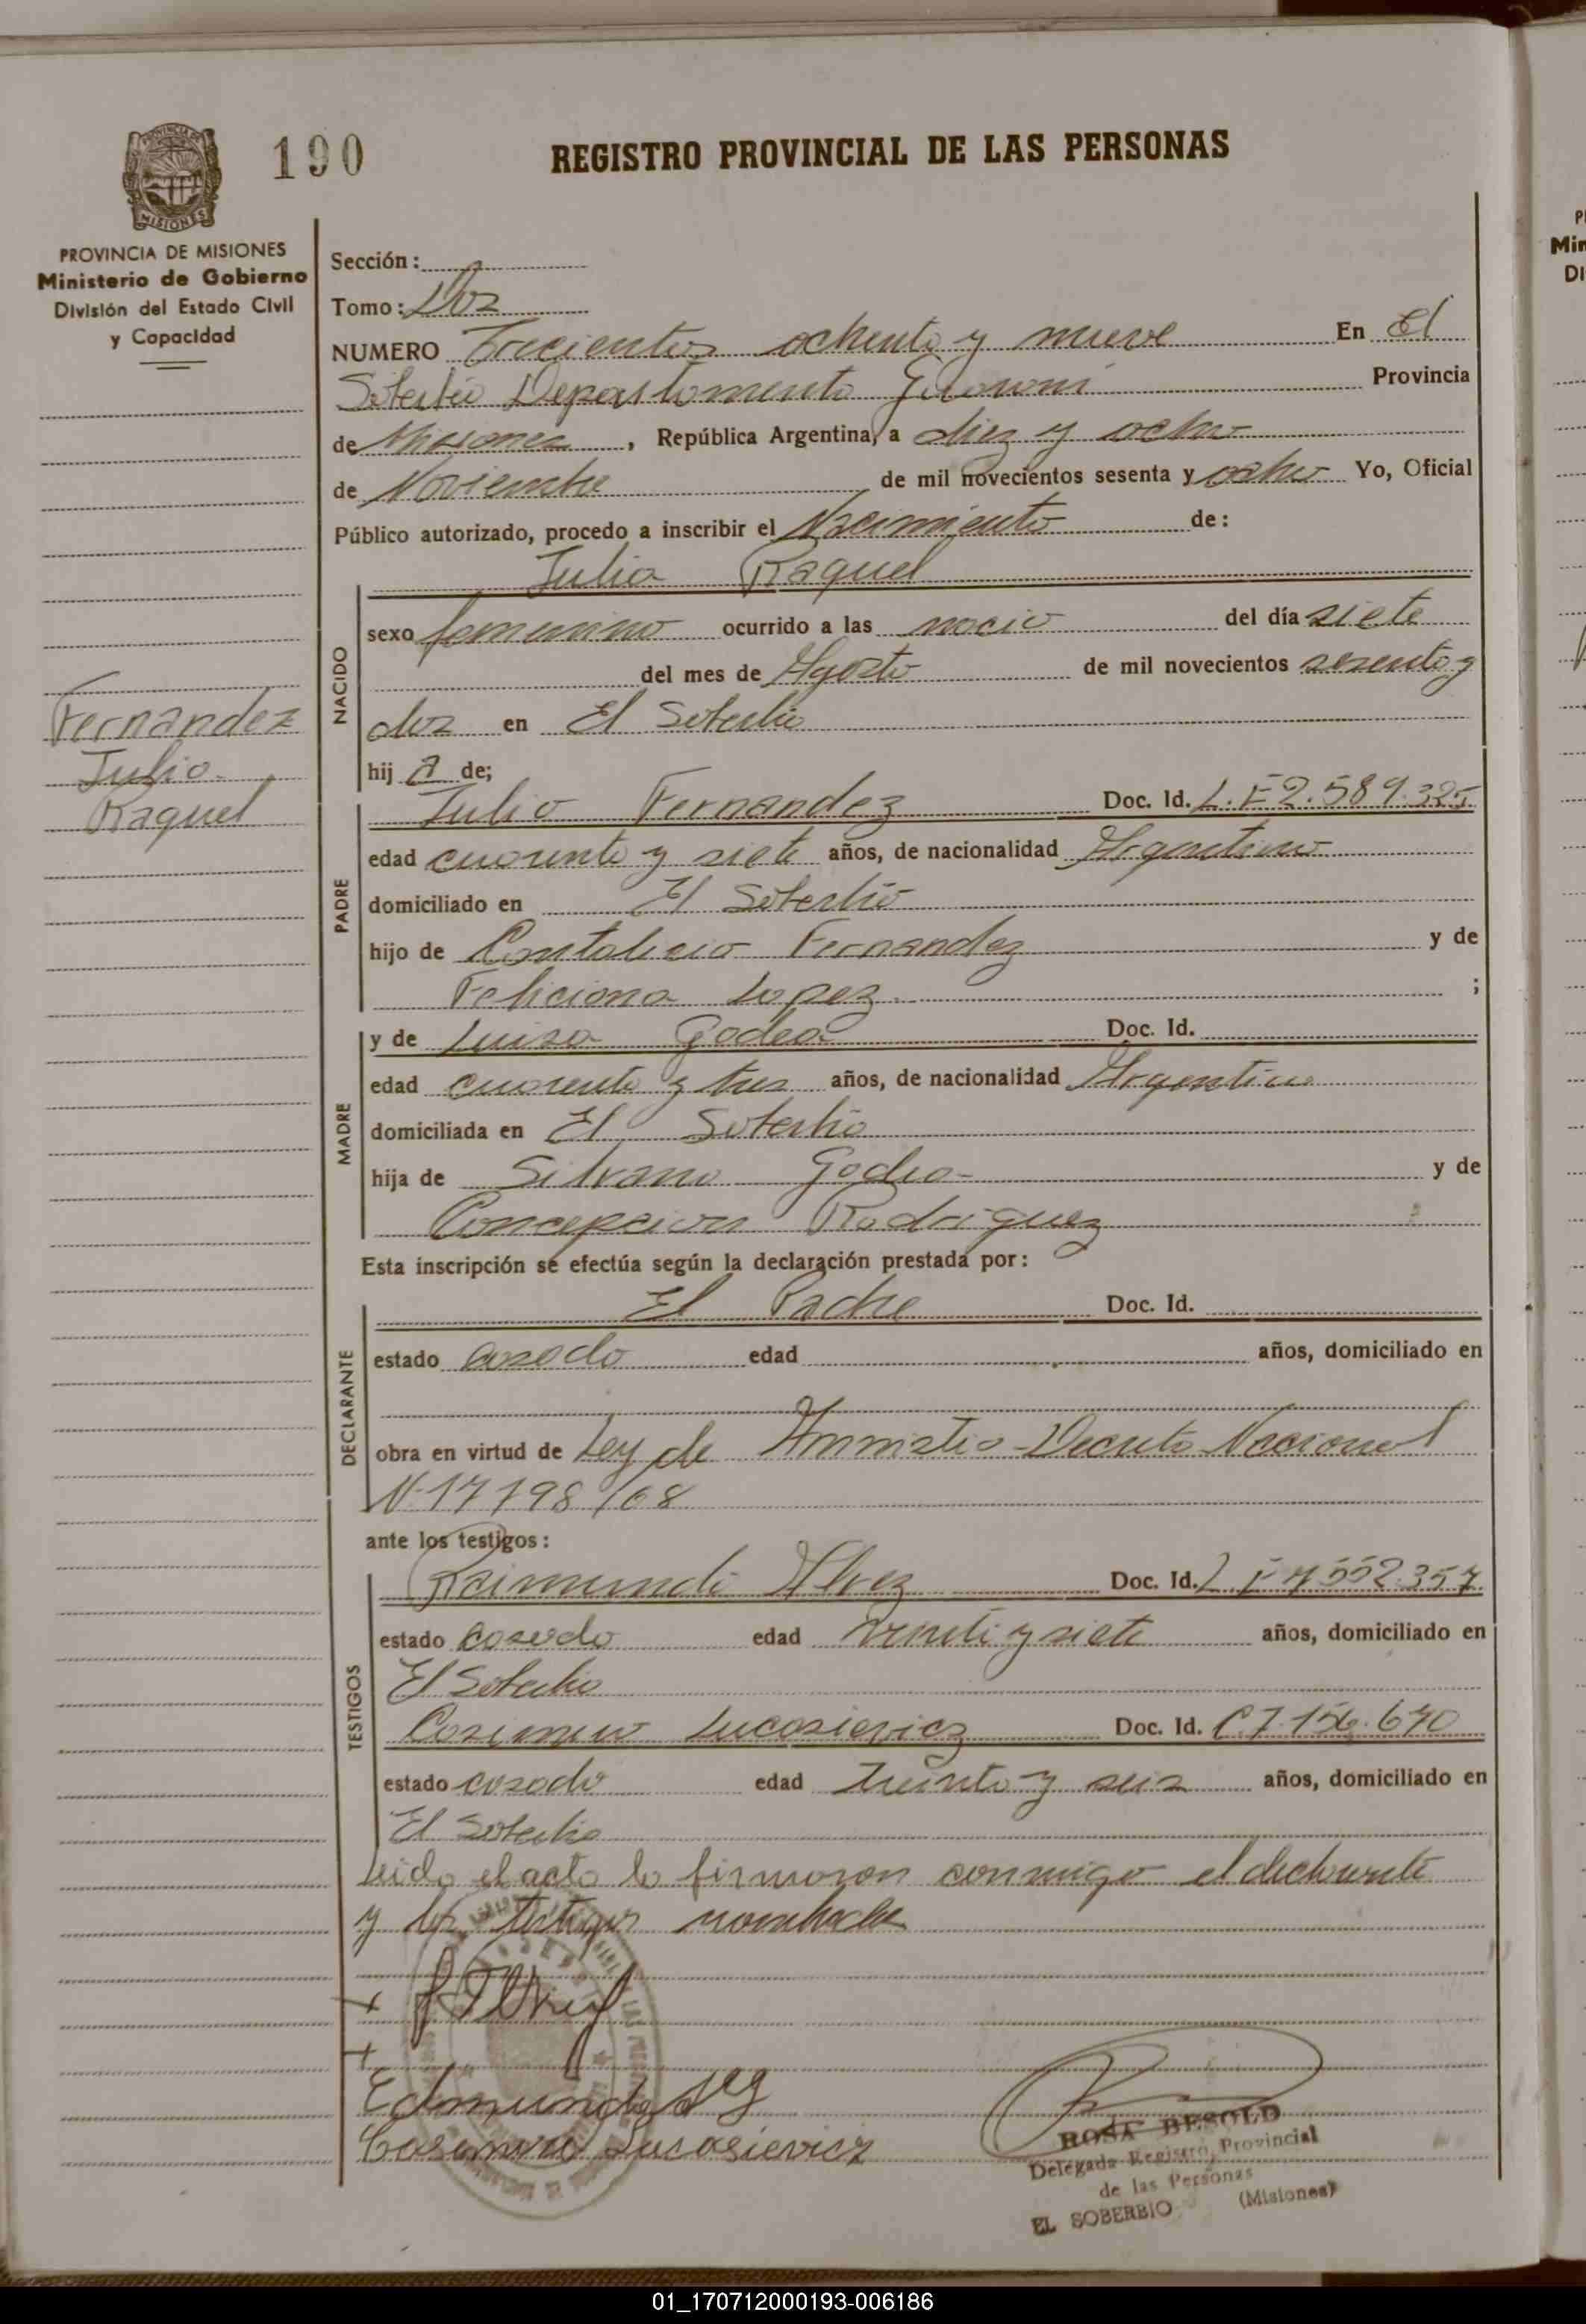 190
REGISTRO PROVINCIAL DE LAS PERSONAS
PROVINCIA DE
MISIONES
PROVINCIA DE MISIONES
Ministerio de Gobierno
División del Estado Civil
y Capacidad
Fernandez
Julia
Raquel
Sección:
Tomo: Dos
NUMERO Trecientos ochenta y nueve En El
Soberbio Departamento Guarani Provincia
de Misiones, República Argentina, a diez y ocho
de Noviembre de mil novecientos sesenta y ocho Yo, Oficial
Público autorizado, procedo a inscribir el Nacimiento de:
Julia Raquel
NACIDO
sexo femenino ocurrido a las del día siete
del mes de Agosto de mil novecientos sesenta y
dos en El Soberbio
hij a de;
PADRE
Julio Fernandez Doc. Id. L. E 2.589.325
edad cuarenta y siete años, de nacionalidad Argentino
domiciliado en El Soberbio
hijo de Fernandez y de
Feliciana Lopez ;
MADRE
y de Luisa Godoa Doc. Id.
edad cuarenta y tres años, de nacionalidad Argentina
domiciliada en El Soberbio
hija de Silvano y de
Concepcion Rodriguez
Esta inscripción se efectúa según la declaración prestada por:
DECLARANTE
El Padre Doc. Id.
estado casado edad años, domiciliado en
obra en virtud de Ley de Amnistia - Decreto Nacional
N-17798/68
ante los testigos:
TESTIGOS
Raimundo Alvez Doc. Id. L E 7.552.357
estado casado edad veinti y siete años, domiciliado en
El Soberbio
Casimiro Lucasievicz Doc. Id. C.7.156.670
estado casado edad treinta y seis años, domiciliado en
El Soberbio
Leida el acta la firmaron conmigo el declarante
y los testigos nombrados
Casimiro Lucasievicz
ROSA BESOLD
Delegada Registro Provincial
de las Personas
EL SOBERBIO (Misiones)
01_170712000193-006186